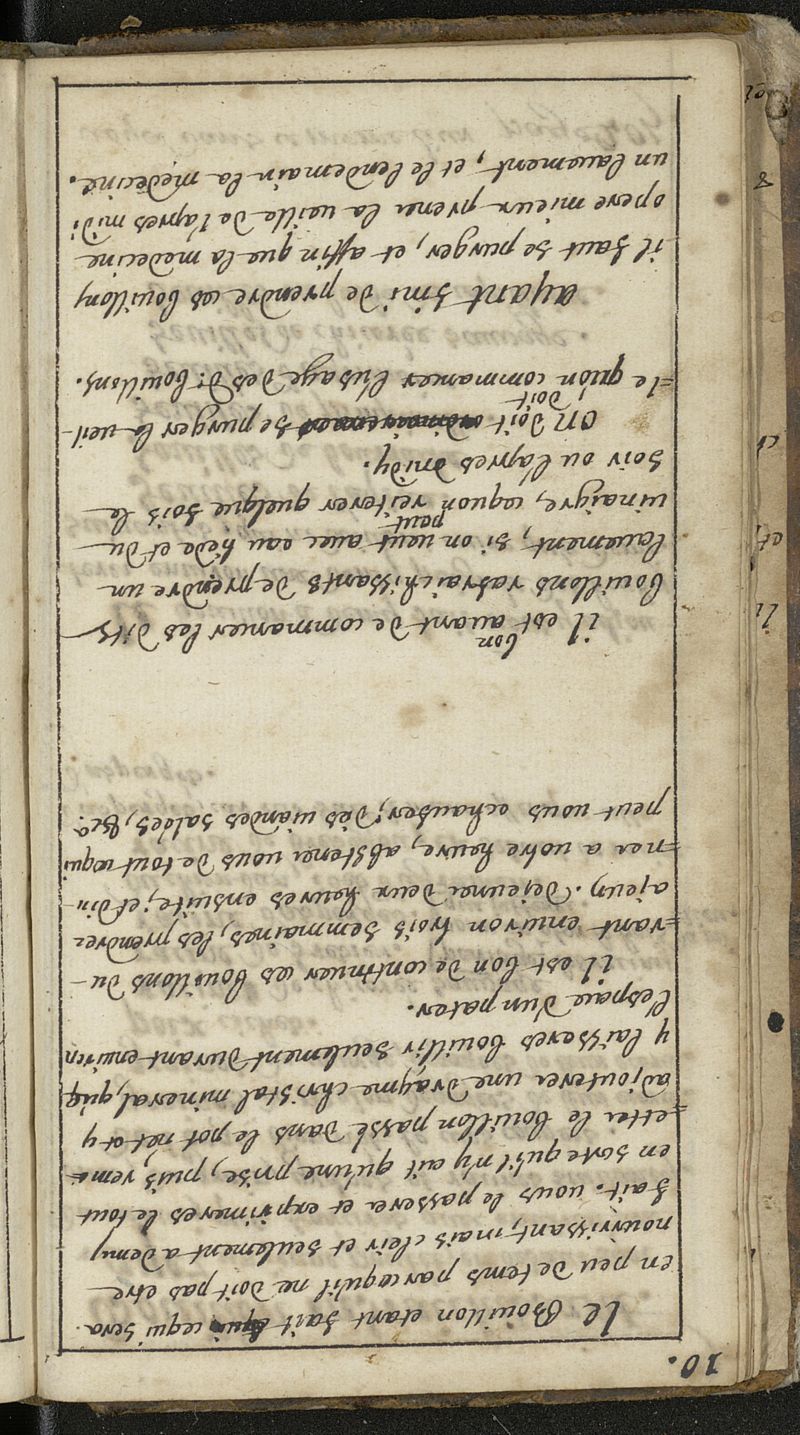 10.
le Bouillon etant fait cequi sera
en peu de tems parcequ'il ne doit pas etre
nourrissant, mais cleir et seulement a demy
fait. vous le passerez et exprimerez le tout
en sorte qu'il n'y ait qu'une prise, puis rem=
=ettez le bouillon passé dans le pot net et y
adjouterez une dragme christal mineral, que
y laisseres bouillir seulement durant environ
l'espace d'un pater.
il est bon de continuer ces bouillons du=
=rant environ trois semmaines, les prendrez
ajeun. Dejeunez deux heures ensuite, et din=
=nez a votre heure, abstenez vous de tout cequi
peut vous echaufer; des viandes salées, &c.
il est bon avant de commancer les dits
bouillons rafraichissants de prendre un
lavement, si on veut avec eau tiede et du
vinaigre, cequon peut reiterer quelque fois le
soir ou l'apres midy.
on doit se purger la veil=
=le qu'on doit commancer l'usage des d: bouillons.
ayant fini de prendre ces bouillons
il faut se purger, et affin que la medecine
opere mieux prenez la veille de l'apres midi
un lavement, et le lendemain la medecine.